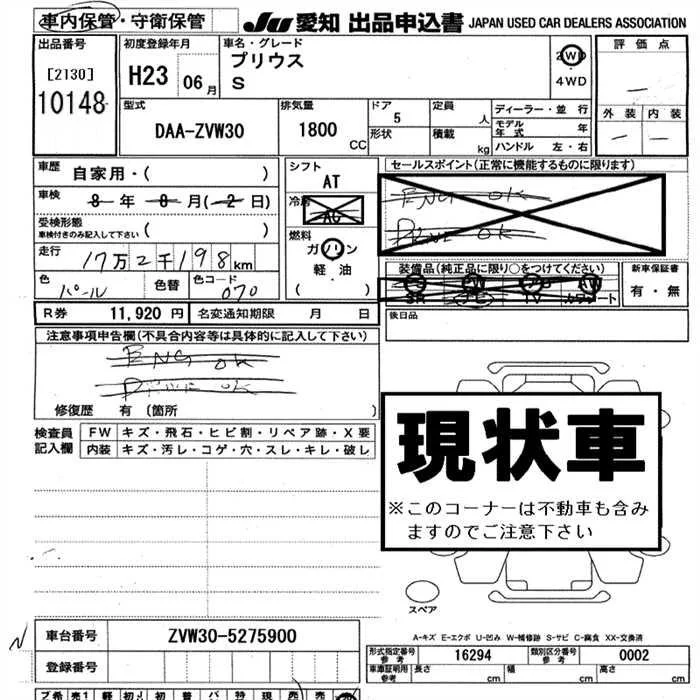 車内保管・守衛保管
JU 愛知 出品申込書 JAPAN USED CAR DEALERS ASSOCIATION
出品番号 初度登録年月 車名・グレード 評価点
[2130] H23 06月 プリウス 2WD
10148 S 4WD
型式 排気量 ドア 5 定員 人 ディーラー・並行 外装 内装
DAA-ZVW30 1800 CC 形状 積載 kg モデル年式 年
ハンドル 左・右
車歴 自家用・( ) シフト AT セールスポイント(正常に機能するものに限ります)
車検 8年 8月(-2日) 冷房 AC ENG OK
受検形態 車検付きのみ記入して下さい ( ) 燃料 ガソリン
走行 17万2千198km 軽油
色 パール 色替 色コード 070 ( )
装備品(純正品に限り○をつけてください) 新車保証書
SR ナビ TV 有・無
R券 11,920円 名変通知期限 月 日 後日品
注意事項申告欄(不具合内容等は具体的に記入して下さい)
ENG OK
DRIVE OK
修復歴 有 (箇所 )
検査員 FW キズ・飛石・ヒビ割・リペア跡・X要
記入欄 内装 キズ・汚レ・コゲ・穴・スレ・キレ・破レ
現状車
※このコーナーは不動車も含み
ますのでご注意下さい
スペア
A-キズ E-エクボ U-凹み W-補修跡 S-サビ C-腐食 XX-交換済
N 車台番号 ZVW30-5275900
型式指定番号 参考 16294 類別区分番号 参考 0002
登録番号 車庫証明用 参考 長さ cm 幅 cm 高さ cm